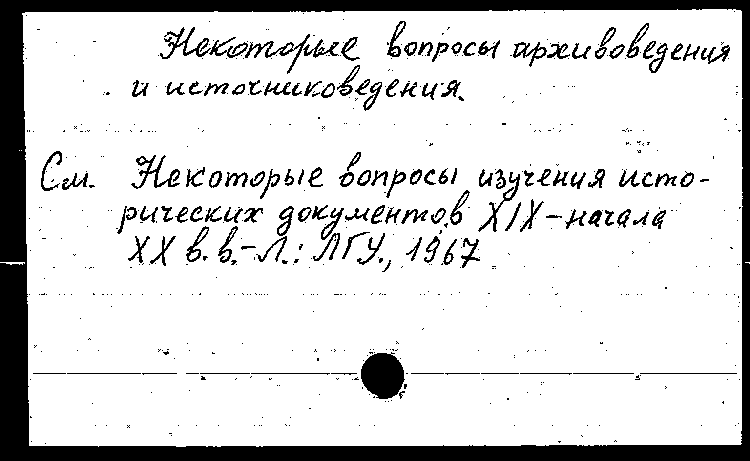 Некоторые вопросы архивоведения
и источниковедения.
См. Некоторые вопросы изучения исто-
рических документов XIX-начала
XX в.в.-Л.: ЛГУ., 1967